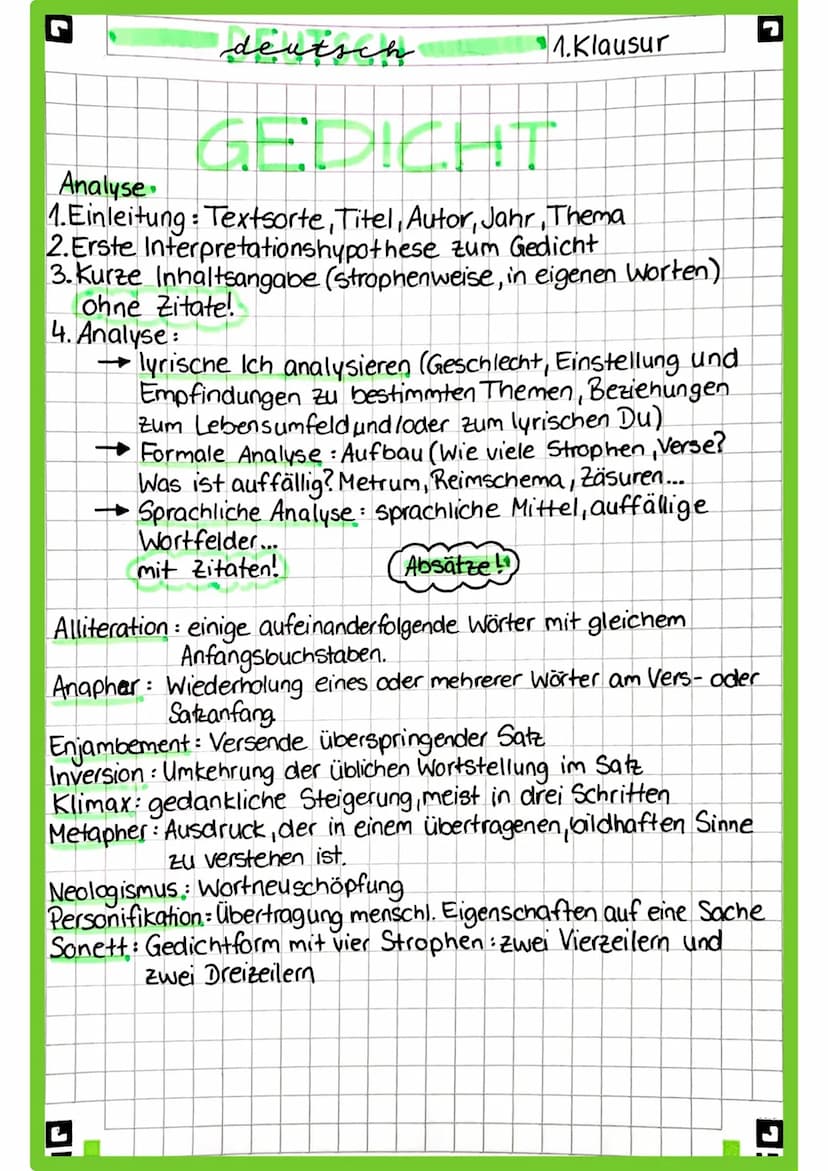 DEUTSCH
deutsch
1.Klausur
GEDICHT
Analyse.
1.Einleitung: Textsorte, Titel, Autor, Jahr, Thema
2.Erste Interpretationshypothese zum Gedicht
3.Kurze Inhaltsangabe (strophenweise, in eigenen Worten)
ohne Zitate!
4.Analyse:
→ lyrische Ich analysieren (Geschlecht, Einstellung und
Empfindungen zu bestimmten Themen, Beziehungen
zum Lebensumfeld und/oder zum lyrischen Du)
→ Formale Analyse: Aufbau (Wie viele Strophen, Verse?
Was ist auffällig? Metrum, Reimschema, Zäsuren...
→ Sprachliche Analyse: sprachliche Mittel, auffällige
Wortfelder...
mit Zitaten!
Absätze!
Alliteration: einige aufeinanderfolgende Wörter mit gleichem
Anfangsbuchstaben.
Anapher: Wiederholung eines oder mehrerer Wörter am Vers- oder
Satzanfang
Enjambement: Versende überspringender Satz
Inversion: Umkehrung der üblichen Wortstellung im Satz
Klimax: gedankliche Steigerung, meist in drei Schritten
Metapher: Ausdruck, der in einem übertragenen, bildhaften Sinne
zu verstehen ist.
Neologismus: Wortneuschöpfung
Personifikation: Übertragung menschl. Eigenschaften auf eine Sache
Sonett: Gedichtform mit vier Strophen: zwei Vierzeilern und
zwei Dreizeilern